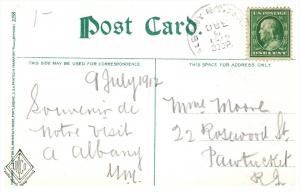 Post Card
THIS SPACE MAY BE USED FOR CORRESPONDENCE.
THIS SPACE IS FOR ADDRESS ONLY.
9 July 1912
Souvenir de
Notre Visit
a Albany
Mme Moore
22 Rosewood St,
Pawtucket
R I